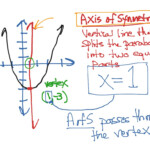 Axis of Symmetry
Vertical line that
splits the parabola
into two equal
parts
x=1
vertex
(1,-3)
AofS passes through
the vertex